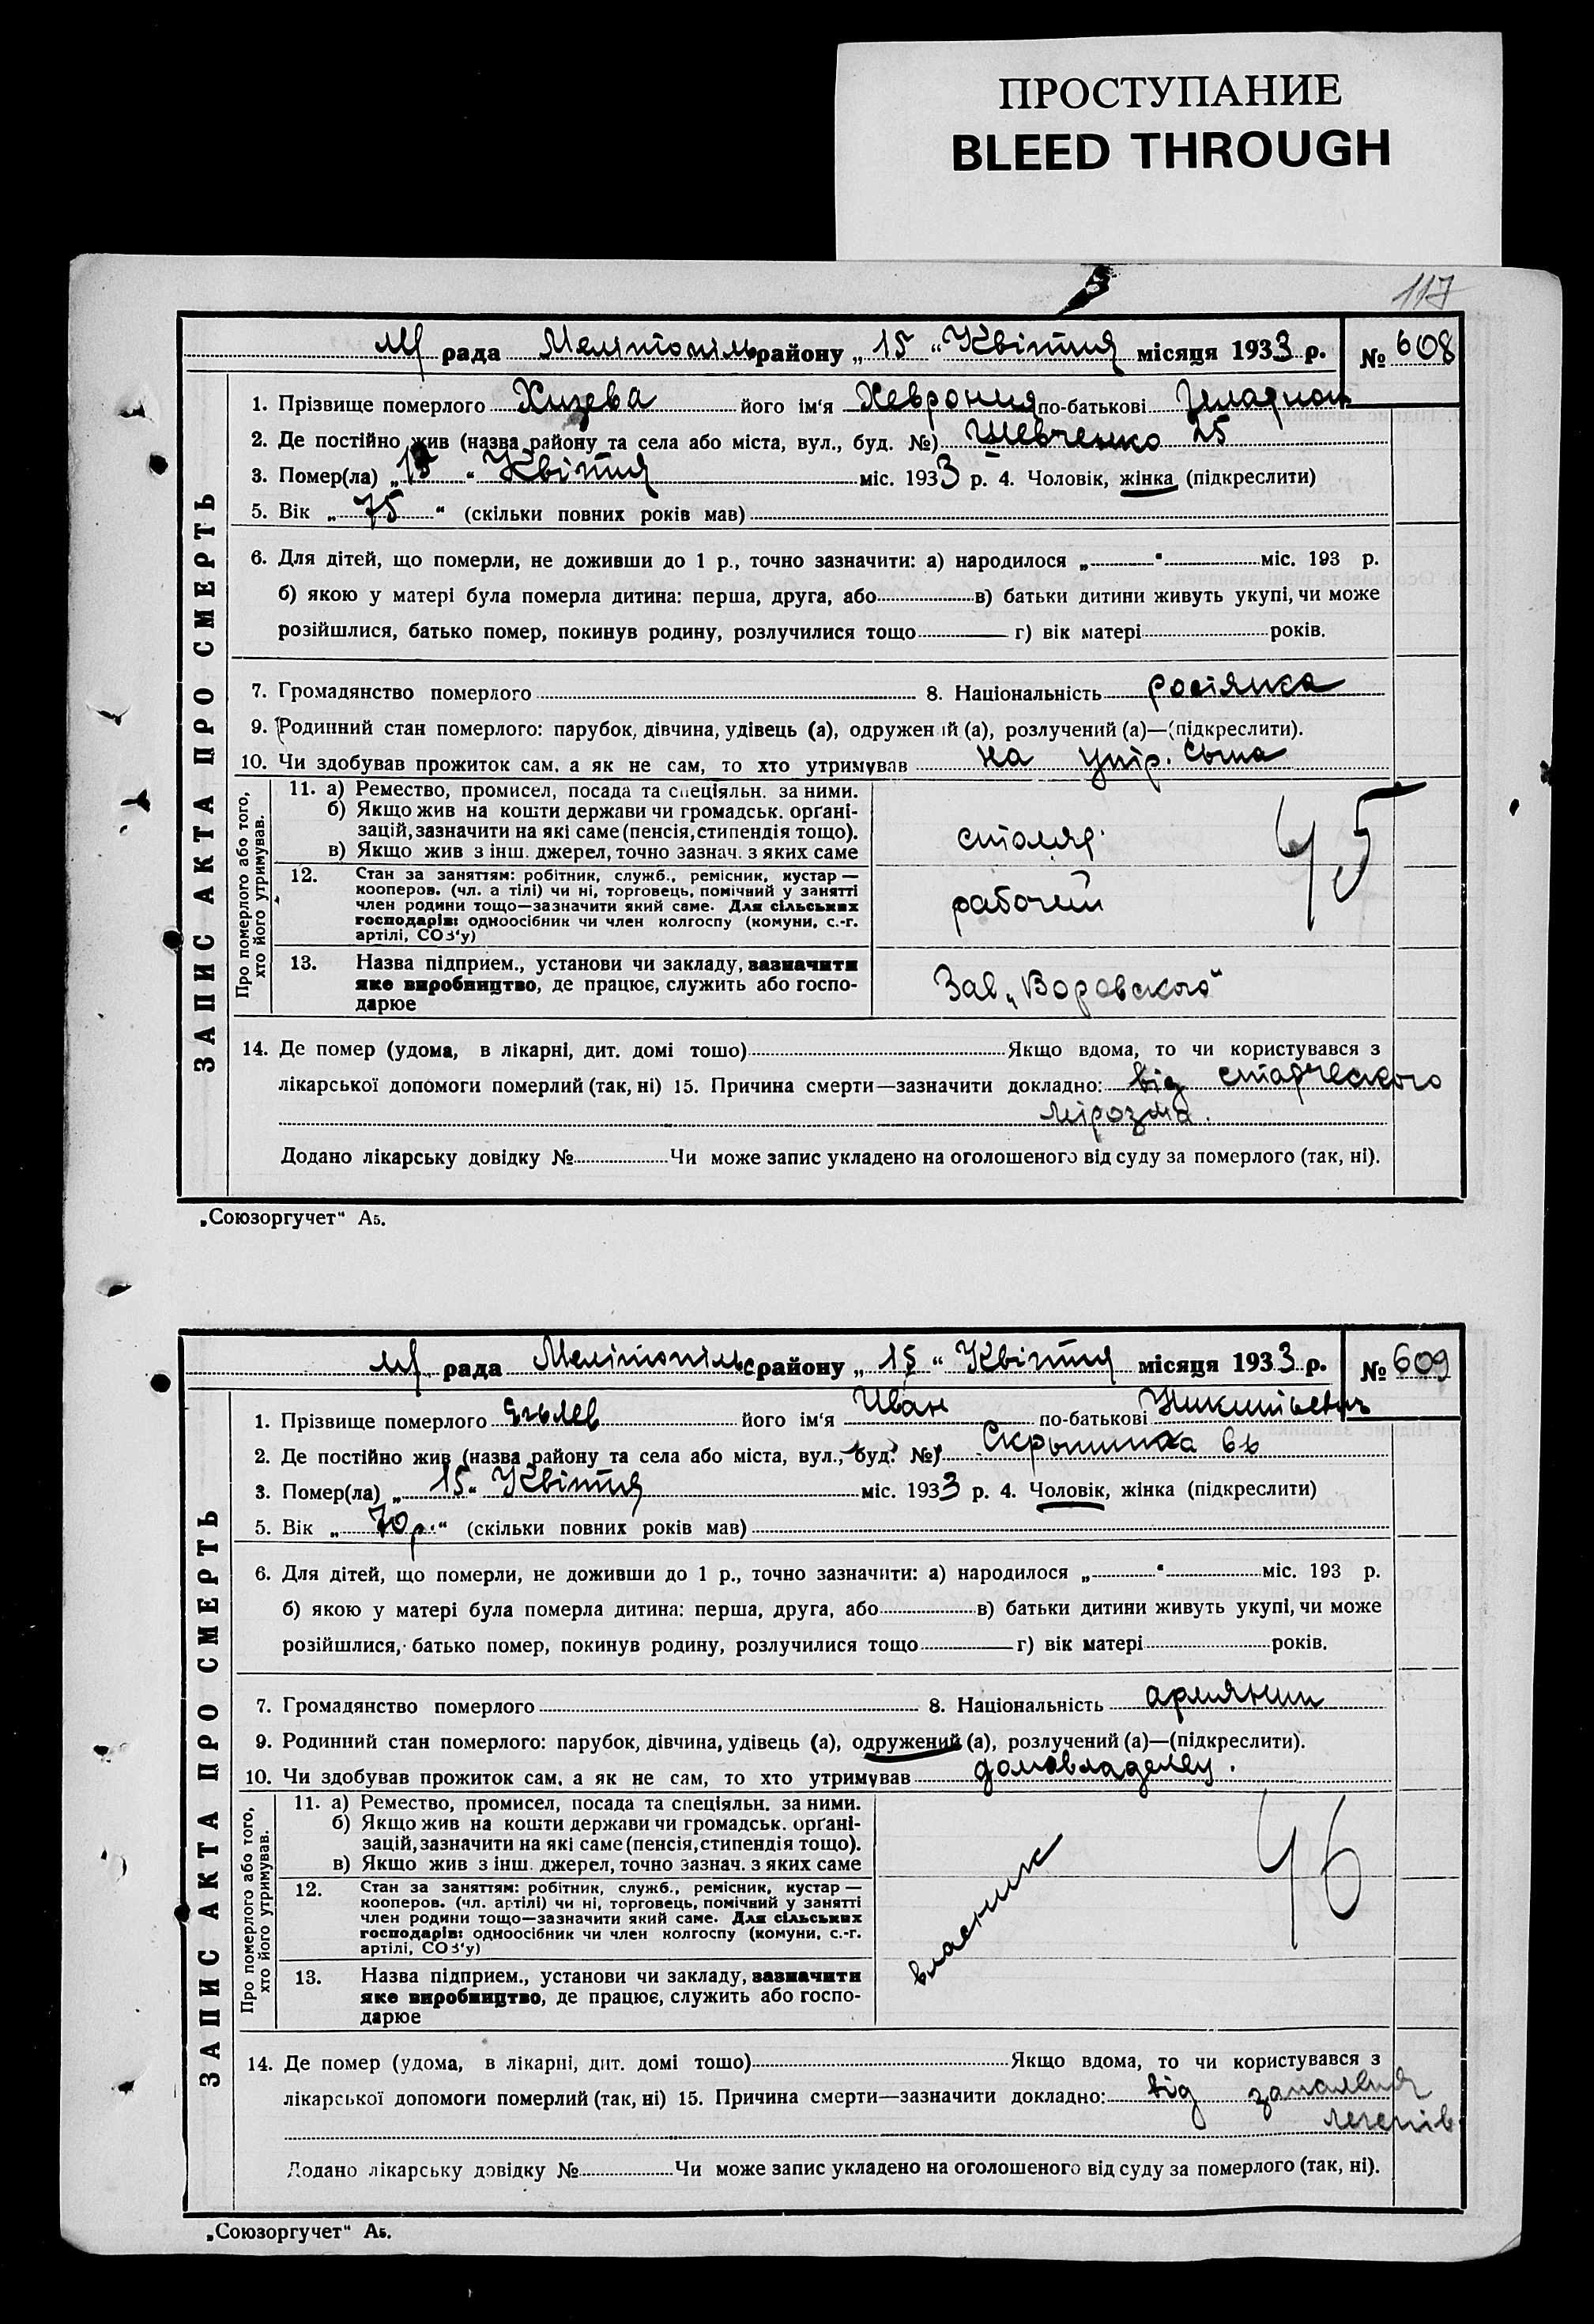 ПРОСТУПАНИЕ
BLEED THROUGH
117
мр рада Мелітопільс району „ 15 “ Квітня місяця 1933 р. № 608
1. Прізвище померлого Хизева його ім‘я Хеврония по-батькові
2. Де постійно жив (назва району та села або міста, вул., буд. №) Шевченко 25
3. Помер(ла) „ “ Квітня міс. 1933 р. 4. Чоловік, жінка (підкреслити)
5. Вік „ 75 “ (скільки повних років мав)
6. Для дітей, що померли, не доживши до 1 р., точно зазначити: а) народилося „ “ міс. 193 р.
б) якою у матері була померла дитина: перша, друга, або в) батьки дитини живуть укупі, чи може
розійшлися, батько помер, покинув родину, розлучилися тощо г) вік матері років.
7. Громадянство померлого 8. Національність росіянка
9. Родинний стан померлого: парубок, дівчина, удівець (а), одружений (а), розлучений (а)—(підкреслити).
10. Чи здобував прожиток сам, а як не сам, то хто утримував на утр. сына
Про померлого або того,
хто його утримував.
11. а) Ремество, промисел, посада та спеціяльн. за ними.
б) Якщо жив на кошти держави чи громадськ. орґані-
зацій, зазначити на які саме (пенсія, стипендія тощо).
в) Якщо жив з інш. джерел, точно зазнач. з яких саме
столяр
45
12. Стан за заняттям: робітник, служб., ремісник, кустар —
кооперов. (чл. а тілі) чи ні, торговець, помічний у занятті
член родини тощо—зазначити який саме. Для сільських
господарів: одноосібник чи член колгоспу (комуни, с.-г.
артілі, СОЗ‘у)
рабочий
13. Назва підприєм., установи чи закладу, зазначити
яке виробництво, де працює, служить або госпо-
дарює
Зав „Воровского“
14. Де помер (удома, в лікарні, дит. домі тошо) Якщо вдома, то чи користувався з
лікарської допомоги померлий (так, ні) 15. Причина смерти—зазначити докладно: від старческого
мірозма.
Додано лікарську довідку № Чи може запис укладено на оголошеного від суду за померлого (так, ні).
ЗАПИС АКТА ПРО СМЕРТЬ
„Союзоргучет“ А5.
мр рада Мелітопільс району „ 15 “ Квітня місяця 1933 р. № 609
1. Прізвище померлого Ягылев його ім‘я Иван по-батькові Никитьевич
2. Де постійно жив (назва району та села або міста, вул., буд. №) Скрыпника
3. Помер(ла) „ 15 “ Квітня міс. 1933 р. 4. Чоловік, жінка (підкреслити)
5. Вік „ 70 р. “ (скільки повних років мав)
6. Для дітей, що померли, не доживши до 1 р., точно зазначити: а) народилося „ “ міс. 193 р.
б) якою у матері була померла дитина: перша, друга, або в) батьки дитини живуть укупі, чи може
розійшлися, батько помер, покинув родину, розлучилися тощо г) вік матері років.
7. Громадянство померлого 8. Національність армянин
9. Родинний стан померлого: парубок, дівчина, удівець (а), одружений (а), розлучений (а)—(підкреслити).
10. Чи здобував прожиток сам, а як не сам, то хто утримував домовладелец.
Про померлого або того,
хто його утримував.
11. а) Ремество, промисел, посада та спеціяльн. за ними.
б) Якщо жив на кошти держави чи громадськ. орґані-
зацій, зазначити на які саме (пенсія, стипендія тощо).
в) Якщо жив з інш. джерел, точно зазнач. з яких саме
власник
46
12. Стан за заняттям: робітник, служб., ремісник, кустар —
кооперов. (чл. артілі) чи ні, торговець, помічний у занятті
член родини тощо—зазначити який саме. Для сільських
господарів: одноосібник чи член колгоспу (комуни, с.-г.
артілі, СОЗ‘у)
13. Назва підприєм., установи чи закладу, зазначити
яке виробництво, де працює, служить або госпо-
дарює
14. Де помер (удома, в лікарні, дит. домі тошо) Якщо вдома, то чи користувався з
лікарської допомоги померлий (так, ні) 15. Причина смерти—зазначити докладно: від запалення
легенів
Додано лікарську довідку № Чи може запис укладено на оголошеного від суду за померлого (так, ні).
ЗАПИС АКТА ПРО СМЕРТЬ
„Союзоргучет“ А5.